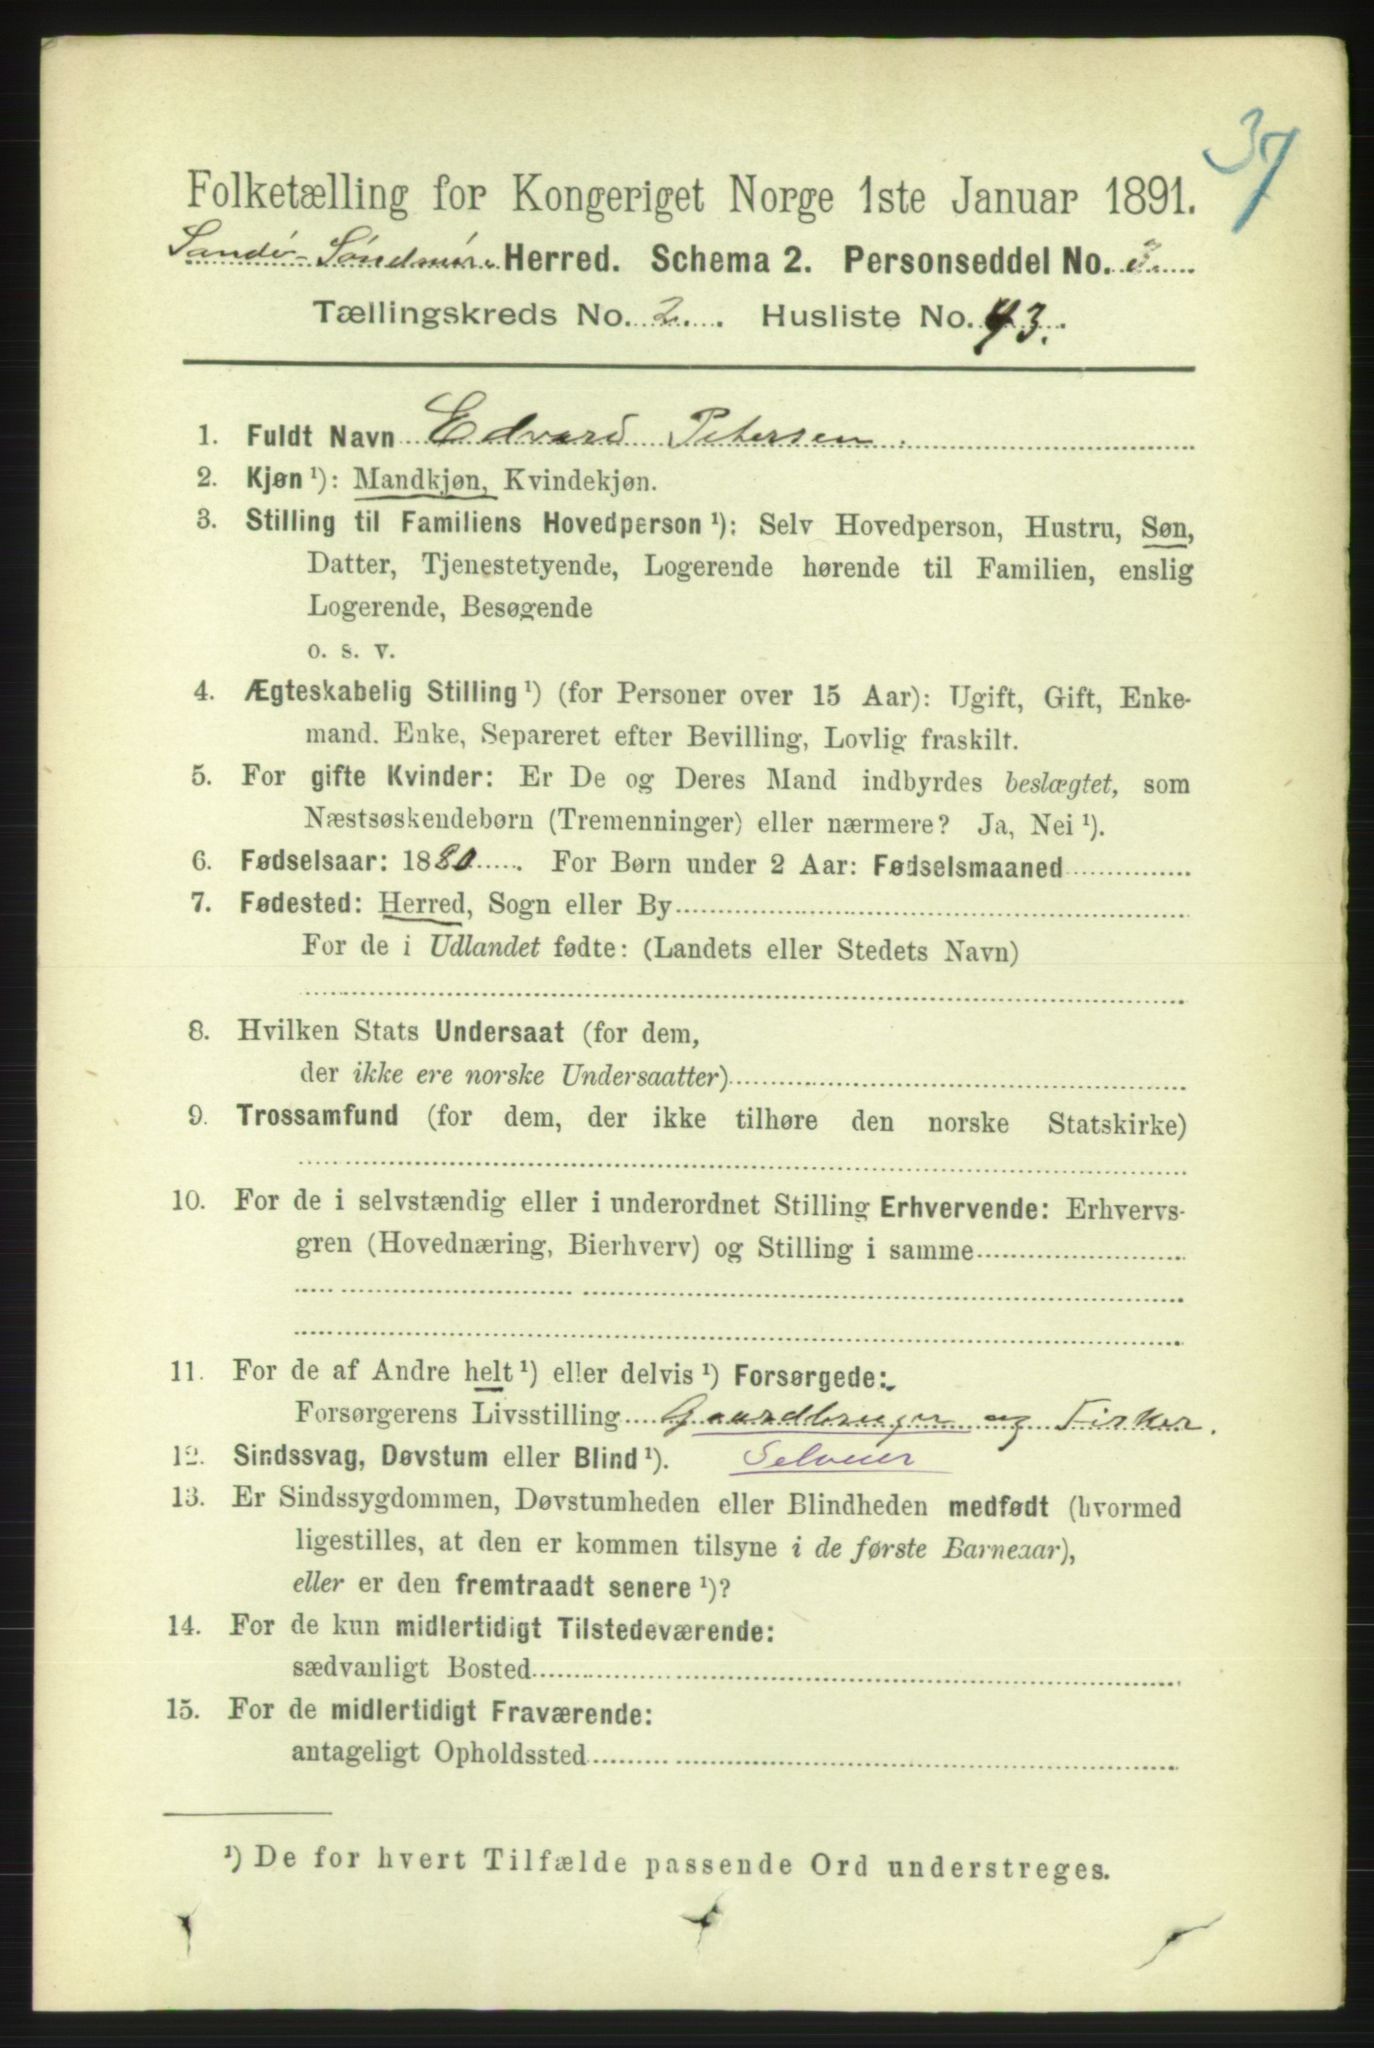 37
Folketælling for Kongeriget Norge 1ste Januar 1891.
Sandø-Søndmør Herred. Schema 2. Personseddel No. 3.
Tællingskreds No. 2. Husliste No. 43.
1. Fuldt Navn Edvard Petersen.
2. Kjøn ¹): Mandkjøn, Kvindekjøn.
3. Stilling til Familiens Hovedperson ¹): Selv Hovedperson, Hustru, Søn,
Datter, Tjenestetyende, Logerende hørende til Familien, enslig
Logerende, Besøgende
o. s. v.
4. Ægteskabelig Stilling ¹) (for Personer over 15 Aar): Ugift, Gift, Enke-
mand. Enke, Separeret efter Bevilling, Lovlig fraskilt.
5. For gifte Kvinder: Er De og Deres Mand indbyrdes beslægtet, som
Næstsøskendebørn (Tremenninger) eller nærmere? Ja, Nei ¹).
6. Fødselsaar: 1880. For Børn under 2 Aar: Fødselsmaaned
7. Fødested: Herred, Sogn eller By
For de i Udlandet fødte: (Landets eller Stedets Navn)
8. Hvilken Stats Undersaat (for dem,
der ikke ere norske Undersaatter)
9. Trossamfund (for dem, der ikke tilhøre den norske Statskirke)
10. For de i selvstændig eller i underordnet Stilling Erhvervende: Erhvervs-
gren (Hovednæring, Bierhverv) og Stilling i samme
11. For de af Andre helt ¹) eller delvis ¹) Forsørgede:
Forsørgerens Livsstilling Gaardbruger og Fisker.
12. Sindssvag, Døvstum eller Blind ¹). Selveier
13. Er Sindssygdommen, Døvstumheden eller Blindheden medfødt (hvormed
ligestilles, at den er kommen tilsyne i de første Barneaar),
eller er den fremtraadt senere ¹)?
14. For de kun midlertidigt Tilstedeværende:
sædvanligt Bosted
15. For de midlertidigt Fraværende:
antageligt Opholdssted
¹) De for hvert Tilfælde passende Ord understreges.